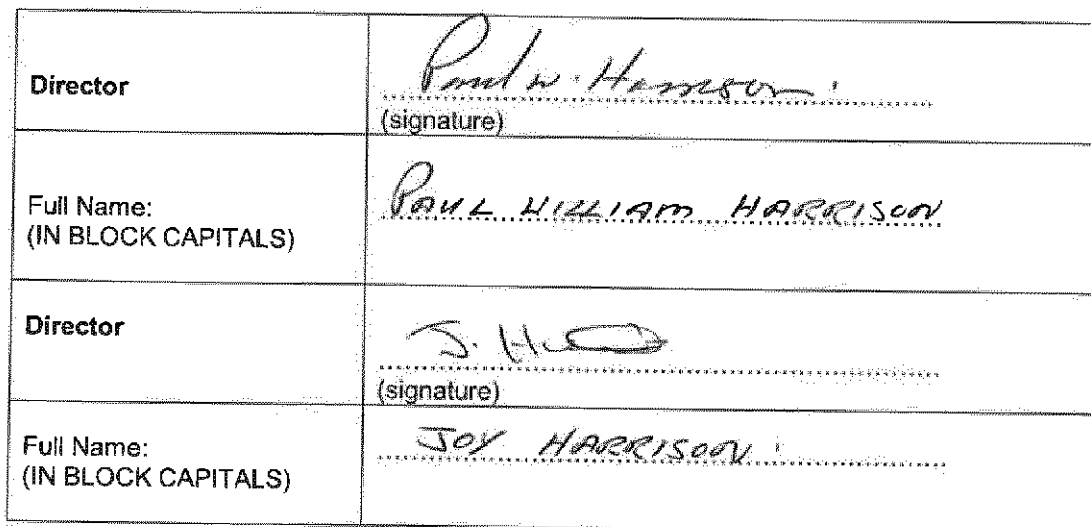 Director
Paul W. Harrison.
(signature)
Full Name:
(IN BLOCK CAPITALS)
PAUL WILLIAM HARRISON
Director
J. H
(signature)
Full Name:
(IN BLOCK CAPITALS)
JOY HARRISON.